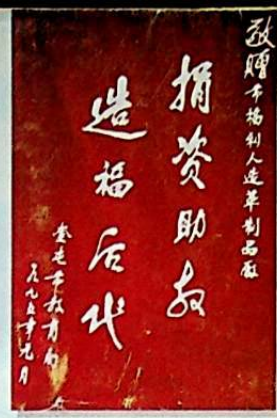 敬赠市福利人造革制品厰
捐资助教
造福后代
市教育局
一九九五年九月